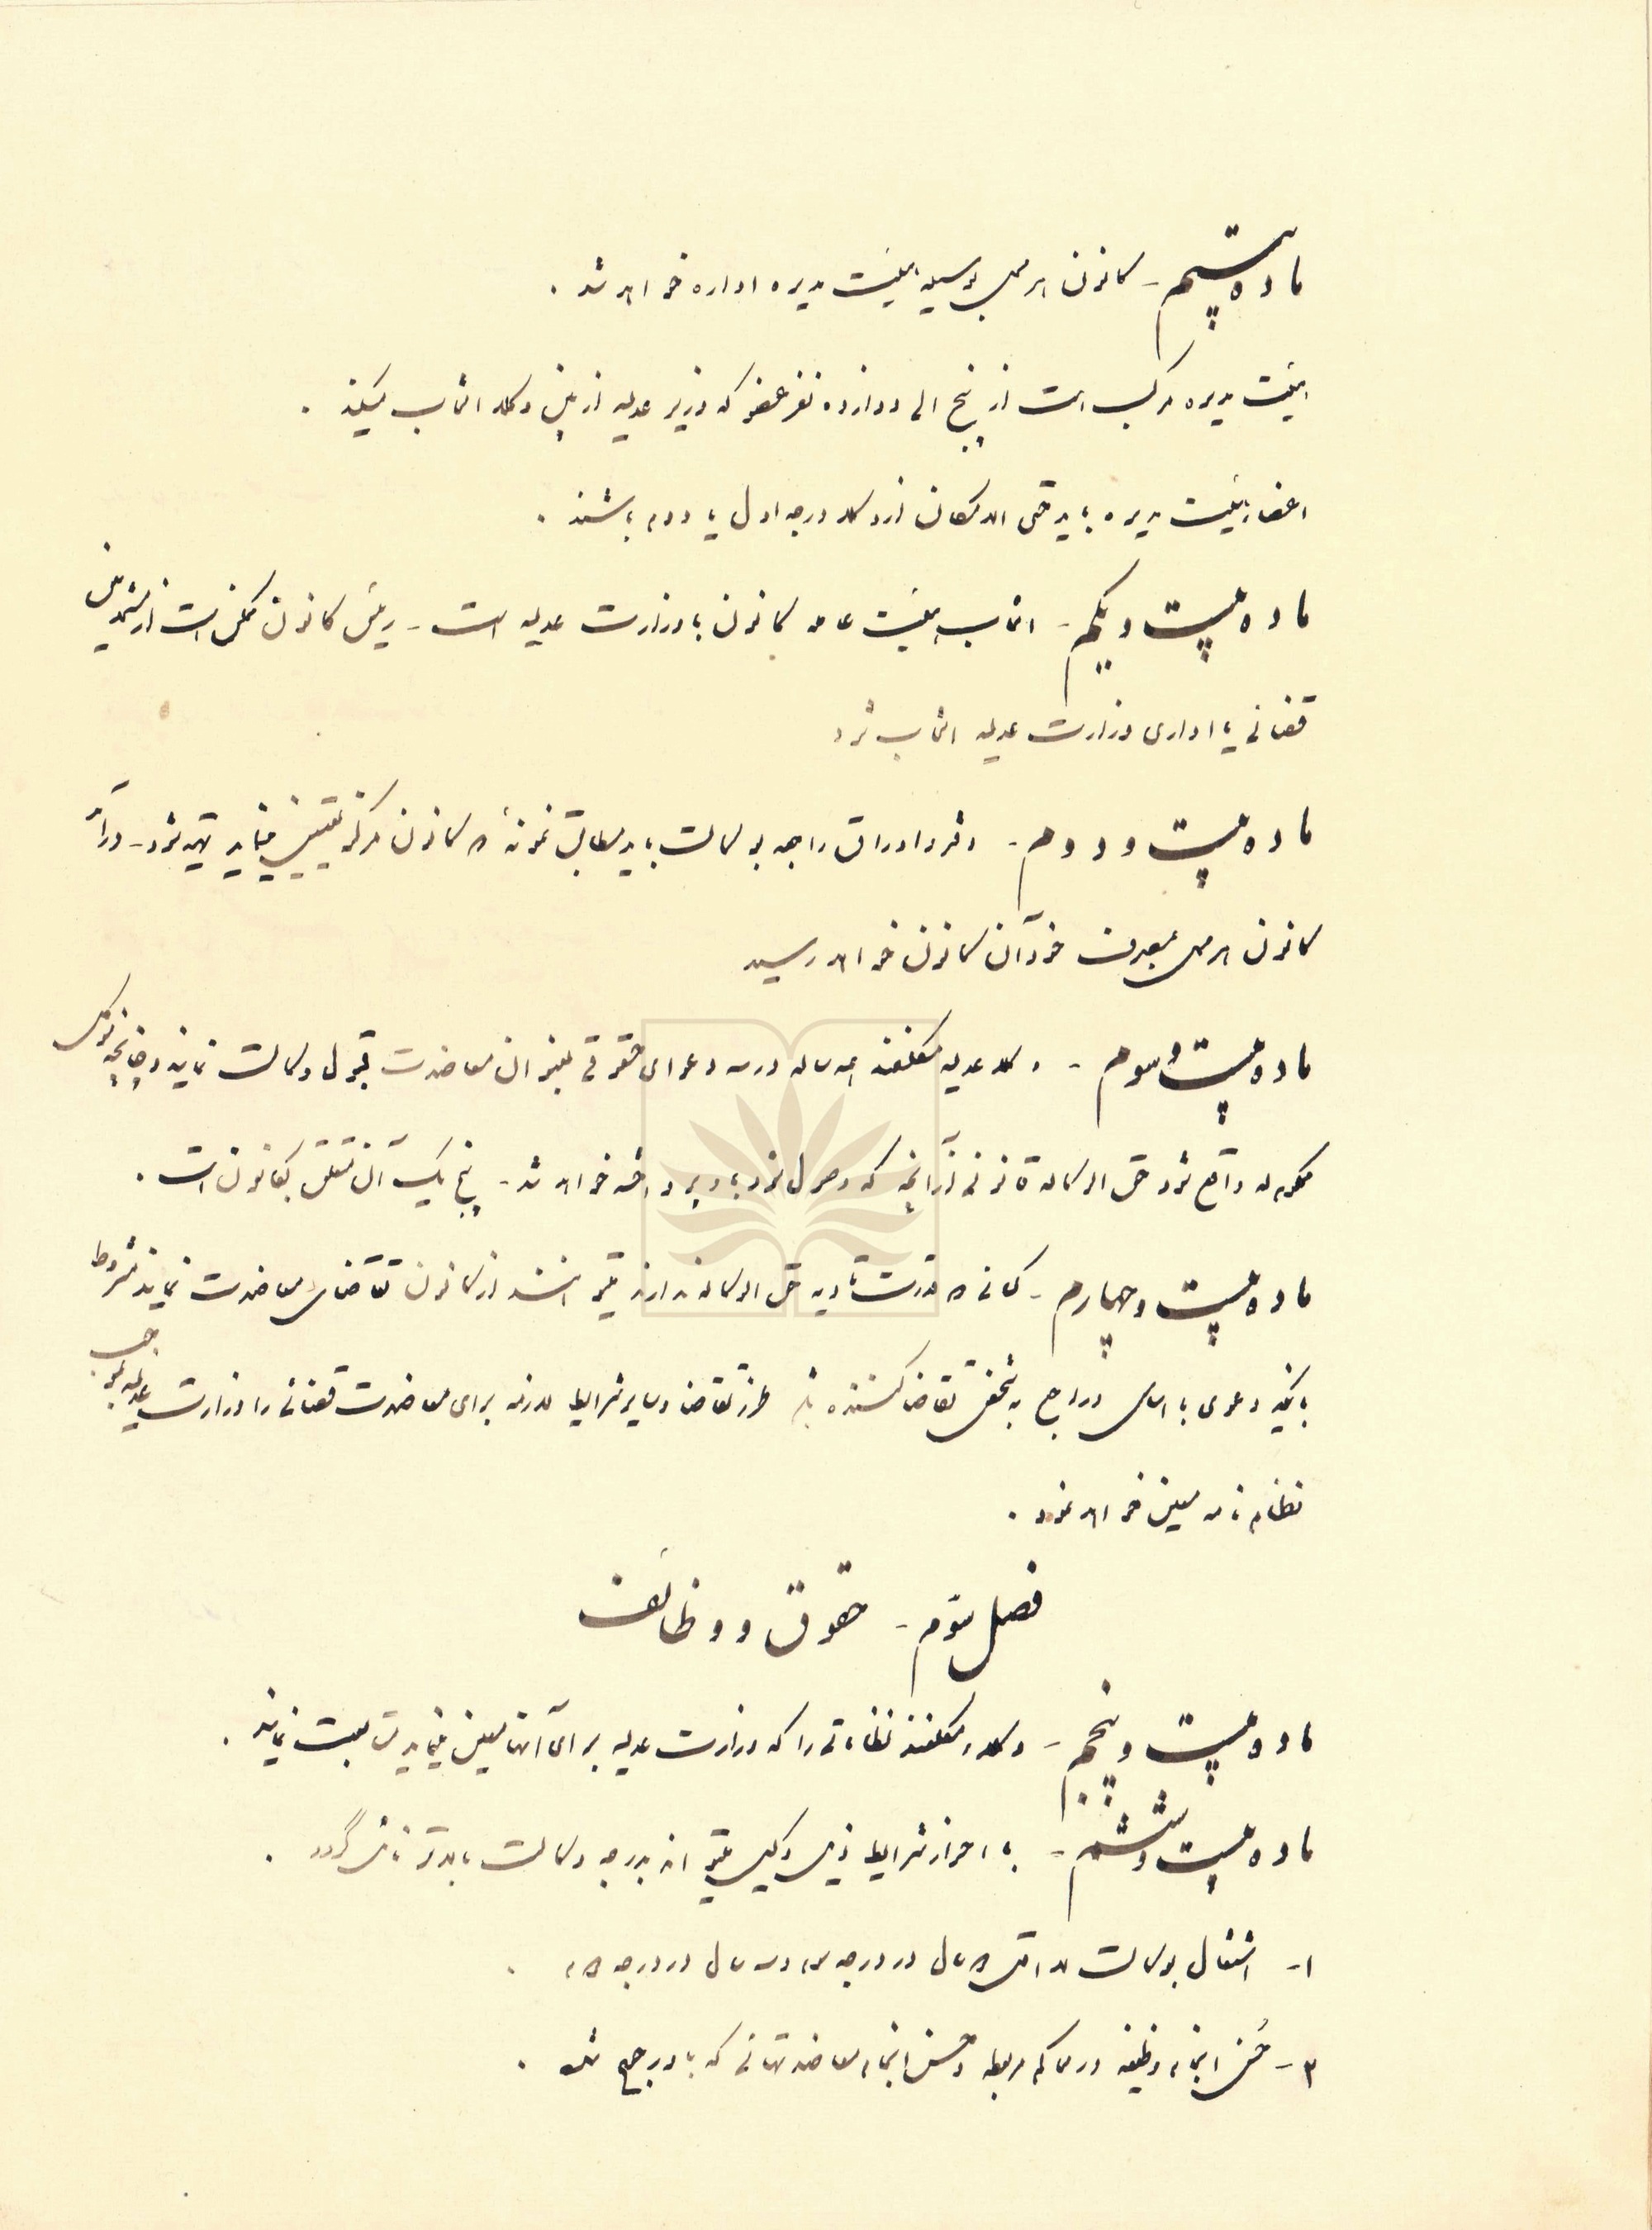 ماده بیستم - کانون هر محل بوسیله هیئت مدیره اداره خواهد شد .
هیئت مدیره مرکب است از پنج الی دوازده نفر عضو که وزیر عدلیه از بین وکلاء انتخاب میکند .
اعضاء هیئت مدیره باید حتی الامکان از وکلاء درجه اول یا دوم باشند .
ماده بیست و یکم - انتخاب هیئت عامه کانون با وزارت عدلیه است - رئیس کانون ممکن است از مستخدمین
قضائی یا اداری وزارت عدلیه انتخاب شود
ماده بیست و دوم - دفتر و اوراق راجعه بوکالت باید مطابق نمونهٔ که کانون مرکز تعیین مینماید تهیه شود -
کانون هر محل بمصرف خود آن کانون خواهد رسید
ماده بیست و سوم - وکلاء عدلیه مکلفند همه ساله در سه دعوای حقوقی بعنوان معاضدت قبول وکالت نمایند و چنانچه موکل
محکوم له واقع شود حق الوکاله قانونی از آنچه که وصول شود باو پرداخته خواهد شد - پنج یک آن متعلق بکانون است .
ماده بیست و چهارم - کسانی که قدرت تادیه حق الوکاله ندارند میتوانند از کانون تقاضای معاضدت نمایند مشروط
باینکه دعوی با اساس و راجع به شخص تقاضا کننده باشد طرز تقاضا و سایر شرایط لازمه برای معاضدت قضائی را وزارت عدلیه بموجب
نظام نامه معین خواهد نمود .
فصل سوّم - حقوق و وظائف
ماده بیست و پنجم - وکلاء مکلفند نظاماتی را که وزارت عدلیه برای آنها معین مینماید متابعت نمایند .
ماده بیست و ششم - با احراز شرایط ذیل وکیل میتواند بدرجه وکالت بالاتر نائل گردد .
۱- اشتغال بوکالت لااقل ۵ سال در درجه سوم و سه سال در درجه ۲ .
۲- حُسن انجام وظیفه در محاکم مربوطه و حسن انجام معاضدتهائی که باو رجوع شده .